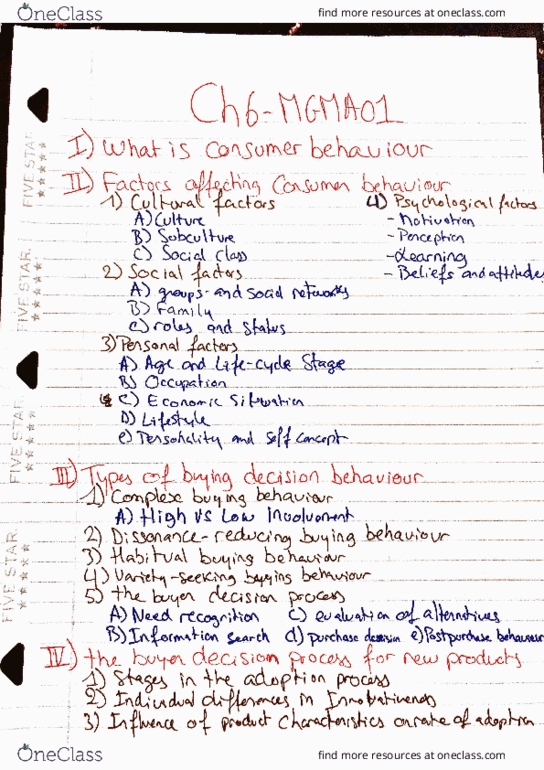 OneClass find more resources at oneclass.com
Ch6-MGMA01
I) What is consumer behaviour
II) Factors affecting Consumer behaviour
1) Cultural factors
A) Culture
B) Subculture
C) Social class
2) Social factors
A) groups and social networks
B) Family
C) roles and status
3) Personal factors
A) Age and Life-cycle Stage
B) Occupation
C) Economic Situation
D) Lifestyle
e) Personality and Self Concept
4) Psychological factors
- Motivation
- Perception
- Learning
- Beliefs and attitudes
III) Types of buying decision behaviour
1) Complexe buying behaviour
A) High vs Low Involvement
2) Dissonance-reducing buying behaviour
3) Habitual buying behaviour
4) Variety-seeking buying behaviour
5) the buyer decision process
A) Need recognition C) evaluation of alternatives
B) Information search d) purchase decision e) Postpurchase behaviour
IV) the buyer decision process for new products
1) Stages in the adoption process
2) Individual differences in Innovativeness
3) Influence of product Characteristics on rate of adoption
FIVE STAR.
FIVE STAR.
FIVE STAR.
FIVE STAR.
OneClass find more resources at oneclass.com